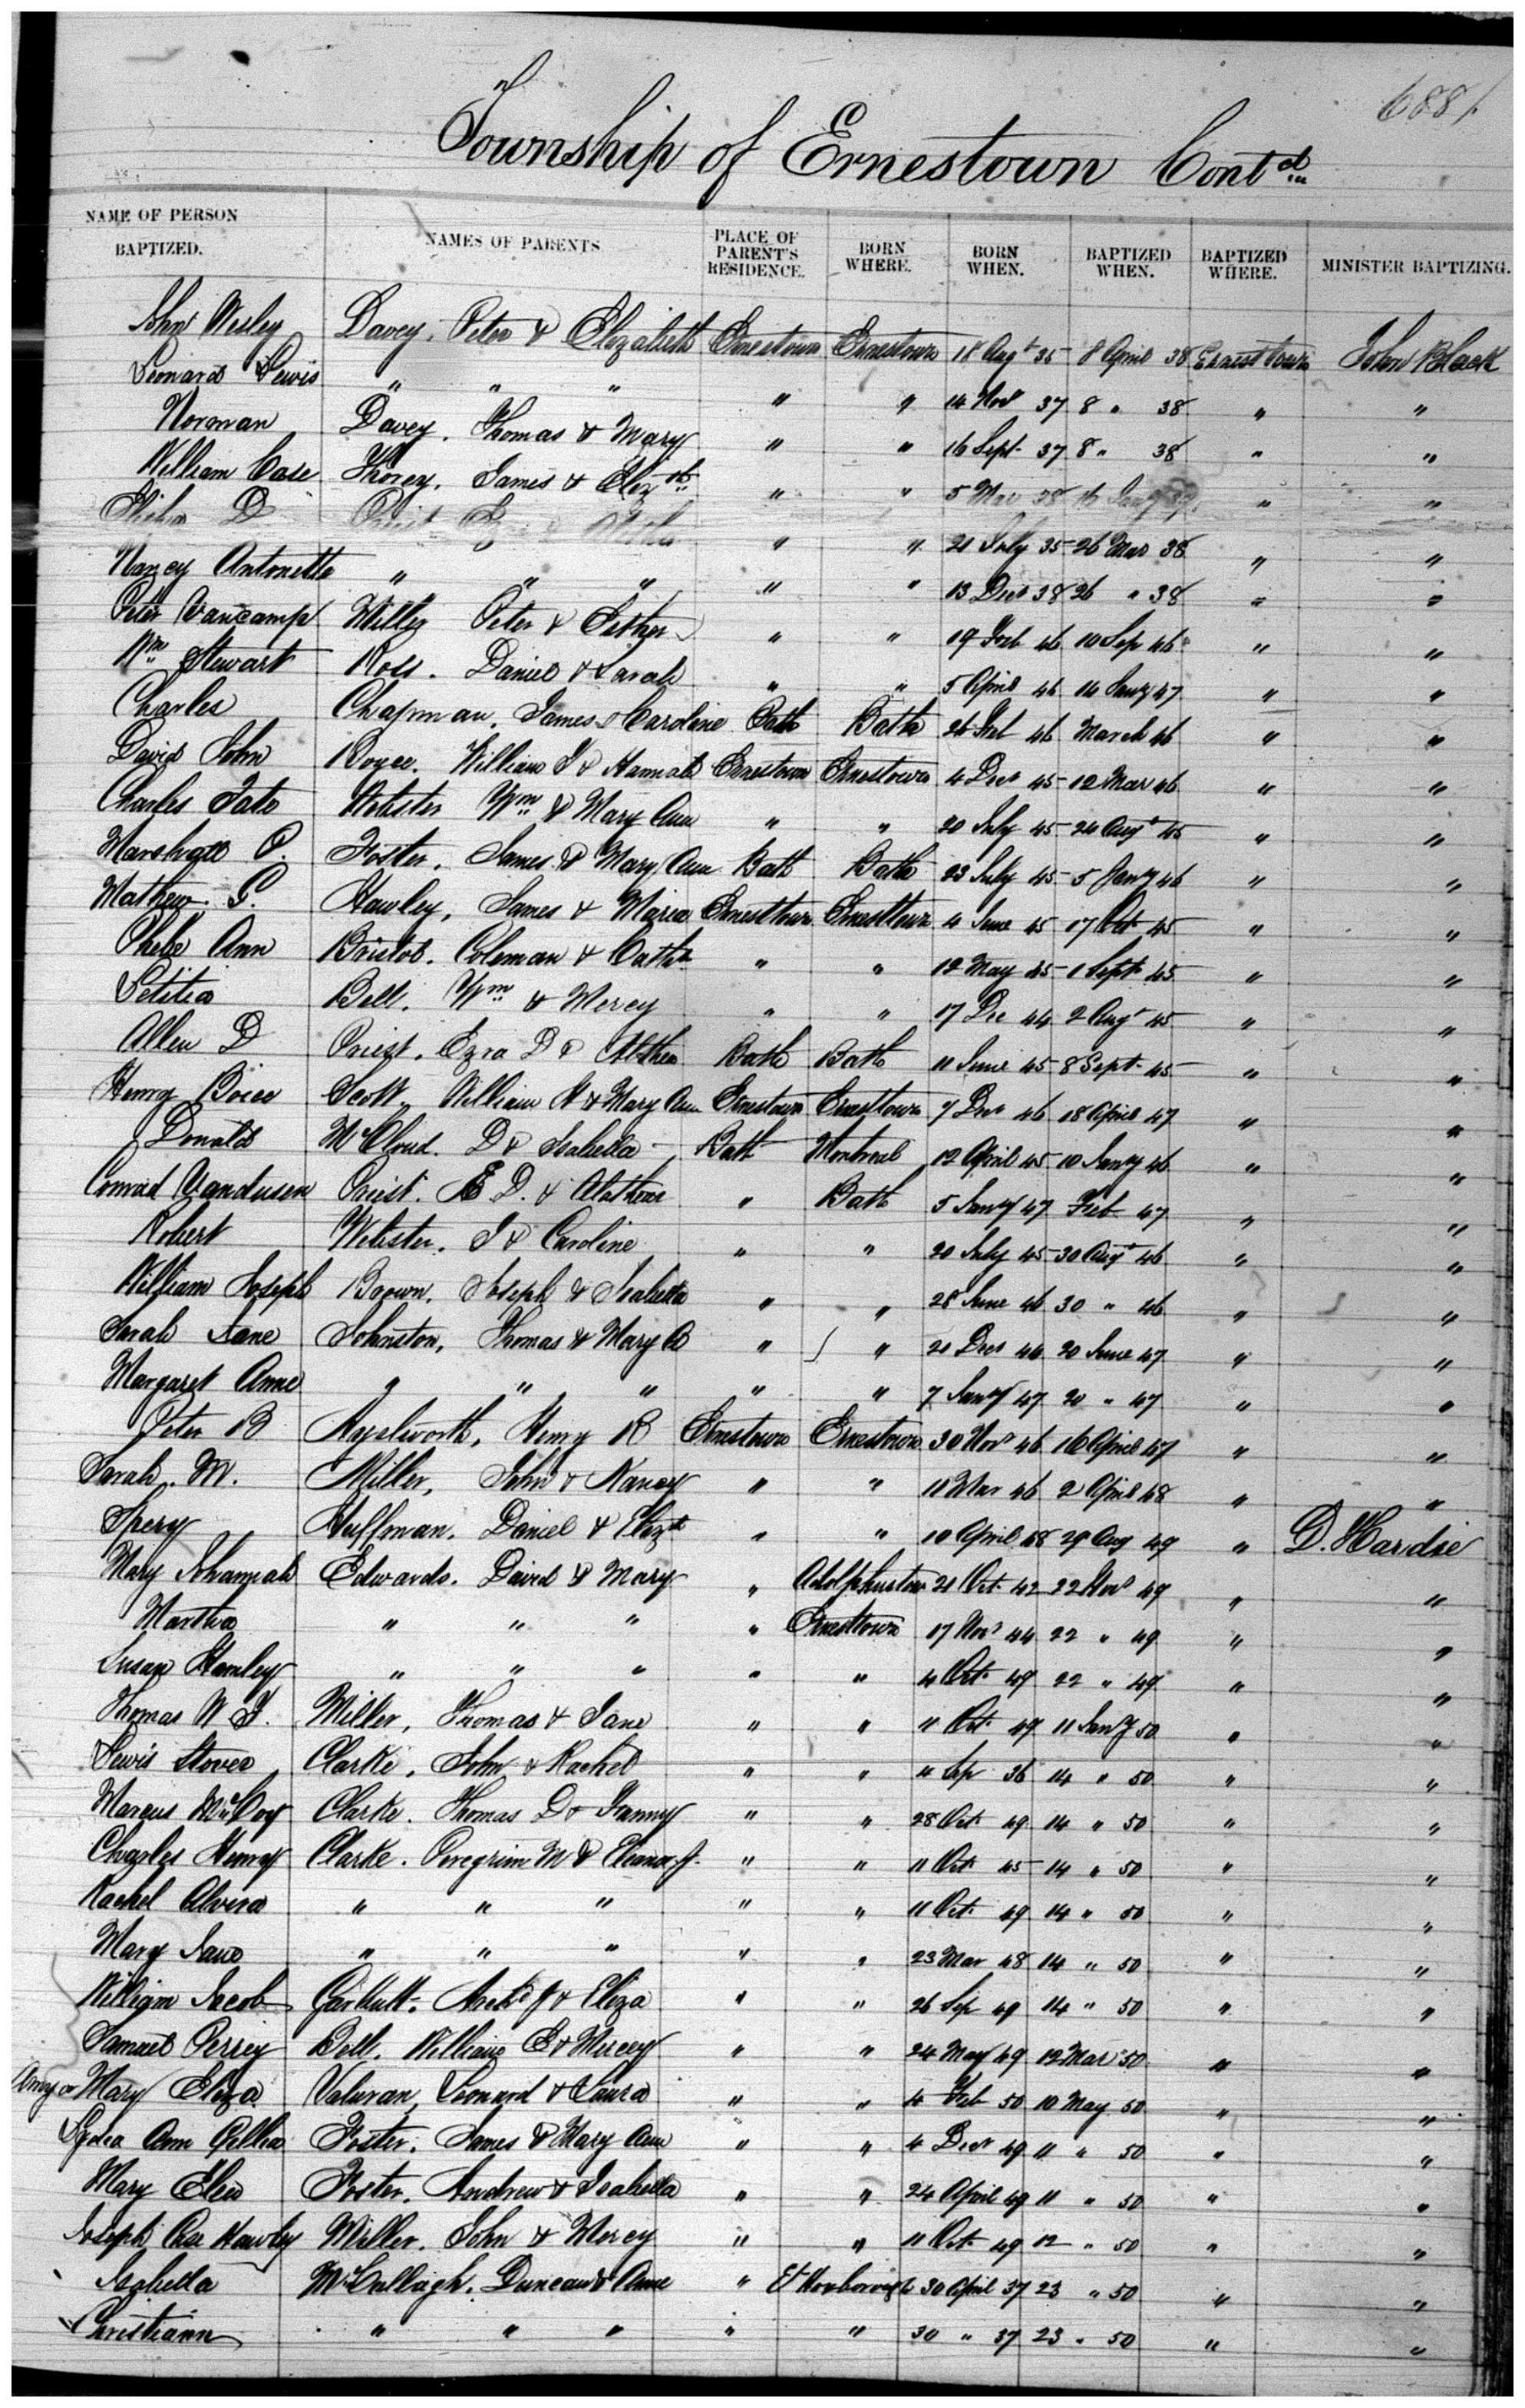 6881
Township of Ernestown Contd
NAME OF PERSON BAPTIZED. NAMES OF PARENTS PLACE OF PARENT'S RESIDENCE. BORN WHERE. BORN WHEN. BAPTIZED WHEN. BAPTIZED WHERE. MINISTER BAPTIZING.
John Wesley Davey, Peter & Elizabeth Ernestown Ernestown 18 Augt 35 8 April 38 Ernest town John Black
Leonard Lewis " " " " " 14 Novr 37 8 " 38 " "
Norman Davey. Thomas & Mary " " 16 Sept 37 8 " 38 " "
William Case James & Elizth " " 5 Mar 38 " "
D Priest " " 21 July 35 26 Mar 38 " "
Nancy Antonette " " " " " 13 Decr 38 26 " 38 " "
Peter Vancamp Willy Peter & Esther " " 19 Feb 46 10 Sep 46 " "
Wm Stewart Ross. Daniel & Sarah " " 5 April 46 14 Jany 47 " "
Charles Chapman, James & Caroline Bath Bath 26 Feb 46 March 46 " "
David John Boyce. William J & Hannah Ernestown Ernestown 4 Decr 45 12 Mar 46 " "
Charles Tate Webster Wm & Mary Ann " " 20 July 45 24 Augt 45 " "
Marshall O. Foster, James & Mary Ann Bath Bath 23 July 45 5 Jany 46 " "
Mathew G. Hawley, James & Maria Ernesttown Ernesttown 4 June 45 17 Oct 45 " "
Phebe Ann Bristol. Coleman & Cath " " 12 May 45 1 Sept 45 " "
Letitia Bell. Wm & Mercy " " 17 Dec 44 2 Augt 45 " "
Allen D Priest, Ezra D & Bath Bath 11 June 45 8 Sept 45 " "
Henry Boice Scott, William H & Mary Ann Ernestown Ernesttown 7 Decr 46 18 April 47 " "
Donald McCloud. D & Isabella Bath Montreal 12 April 45 10 Jany 46 " "
Conrad Vandusen Priest. E D. & " Bath 5 Jany 47 Feb 47 " "
Robert Webster. J & Caroline " " 20 July 45 30 Augt 46 " "
William Joseph Brown. Joseph & Isabella " " 28 June 46 30 " 46 " "
Sarah Jane Johnston, Thomas & Mary A " " 21 Decr 44 20 June 47 " "
Margaret Anne " " " " " 7 Jany 47 20 " 47 " "
Peter B Aypelsworth, Henry B Ernestown Ernestown 30 Novr 46 16 April 47 " "
Sarah. M. Miller, John & Nancy " " 11 Mar 46 2 April 48 " "
Spery Huffman. Daniel & Elizth " " 10 April 48 29 Aug 49 " D. Hardie
Mary Johannah Edwards. David & Mary " Adolphustown 21 Oct 42 22 Novr 49 " "
Martha " " " " Ernesttown 17 Novr 44 22 " 49 " "
Susan Hamley " " " " " 4 Oct 49 22 " 49 " "
Thomas W J. Miller, Thomas & Jane " " 11 Oct 49 11 Jany 50 " "
Lewis Stover Clarke, John & Rachel " " 4 Sep 36 14 " 50 " "
Marcus McCoy Clarke. Thomas D & Franny " " 28 Oct 49 14 " 50 " "
Charles Henry Clarke. Peregrim M & Eleanor J. " " 11 Oct 45 14 " 50 " "
Rachel Alvira " " " " " 11 Oct 49 14 " 50 " "
Mary Jane " " " " " 23 Mar 48 14 " 50 " "
William Jacob Garbutt. Archd J & Eliza " " 26 Sep 49 14 " 50 " "
Samuel Perrey Bell, William E & Mercey " " 24 May 49 12 Mar 50 " "
Amy or Mary Eliza Valuran, Leonard & Laura " " 4 Feb 50 10 May 50 " "
Lydea Ann Gillia Foster. James & Mary Ann " " 4 Decr 49 11 " 50 " "
Mary Elen Foster. Andrew & Isabella " " 24 April 49 11 " 50 " "
Joseph Case Hawley Miller. John & Mercy " " 11 Oct 49 12 " 50 " "
Isabella McCullagh. Duncan & Anne " 30 April 37 23 " 50 " "
Christiann " " " " " 30 " 37 23 " 50 " "